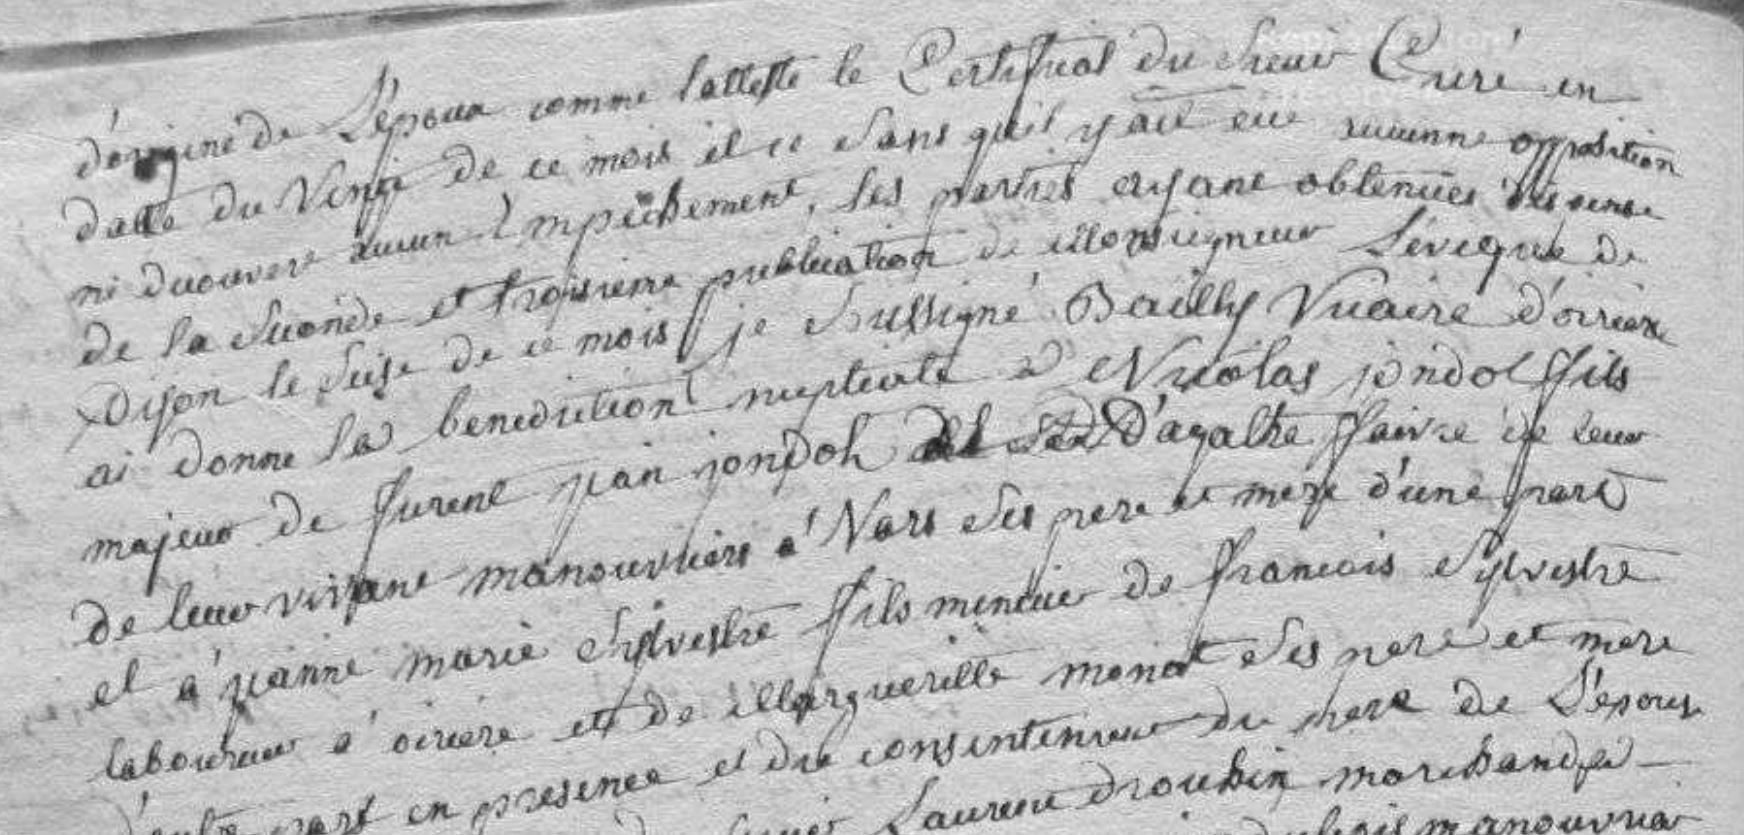 d'origine de L'epoux comme l'atteste le Certificat du Sieur Curé en
datte du Vingt de ce mois et ce sans qu'il y ait eue aucunne opposition
ni decouvert aucun Empêchement, les parties ayant obtenües dispense
de la seconde et troisieme publication de Monseigneur L'évêque de
Dijon le seise de ce mois je soussigné Bailly Vicaire d'oisiere
ai donné la benediction nuptiale a Nicolas jondot fils
majeur de furent jean jondot D'agathe faivre de leur
de leur vivant manouvriers a Vars ses pere et mere d'une part
et a jeanne marie Sylvestre fils mineure de francois Sylvestre
laboureur a oisiere et de Margueritte monot ses pere et mere
d'autre part en presence et du consentement du pere de L'epouse
Laurent drouhin marchand
dubois manouvrier